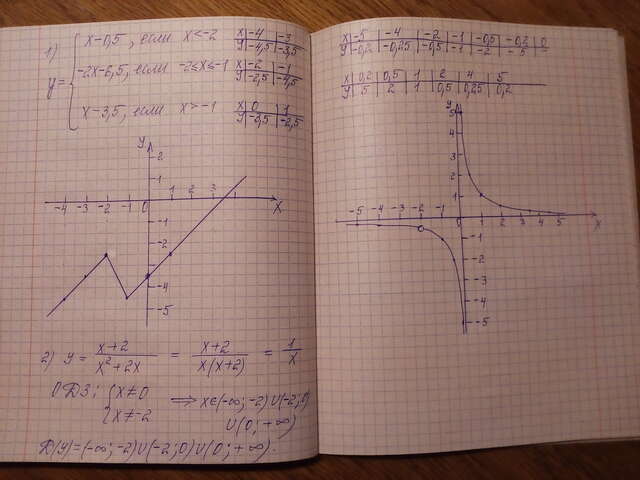 1) y = { x-0,5, если x<-2
x | -4 | -3
y | -4,5 | -3,5
-2x-6,5, если -2≤x≤-1
x | -2 | -1
y | -2,5 | -4,5
x-3,5, если x>-1
x | 0 | 1
y | -3,5 | -2,5
y
2
1
-4 -3 -2 -1 0 1 2 3 x
-1
-2
-4
-5
2) y = x+2 / x²+2x = x+2 / x(x+2) = 1/x
ОДЗ: { x≠0
x≠-2 ⟹ x∈(-∞; -2)∪(-2; 0)
∪(0; +∞)
D(y)=(-∞; -2)∪(-2; 0)∪(0; +∞).
x | -5 | -4 | -2 | -1 | -0,5 | -0,2 | 0
y | -0,2 | -0,25 | -0,5 | -1 | -2 | -5 | –
x | 0,2 | 0,5 | 1 | 2 | 4 | 5
y | 5 | 2 | 1 | 0,5 | 0,25 | 0,2
y
5
4
3
2
1
-5 -4 -3 -2 -1 0 1 2 3 4 5 x
-1
-2
-3
-4
-5